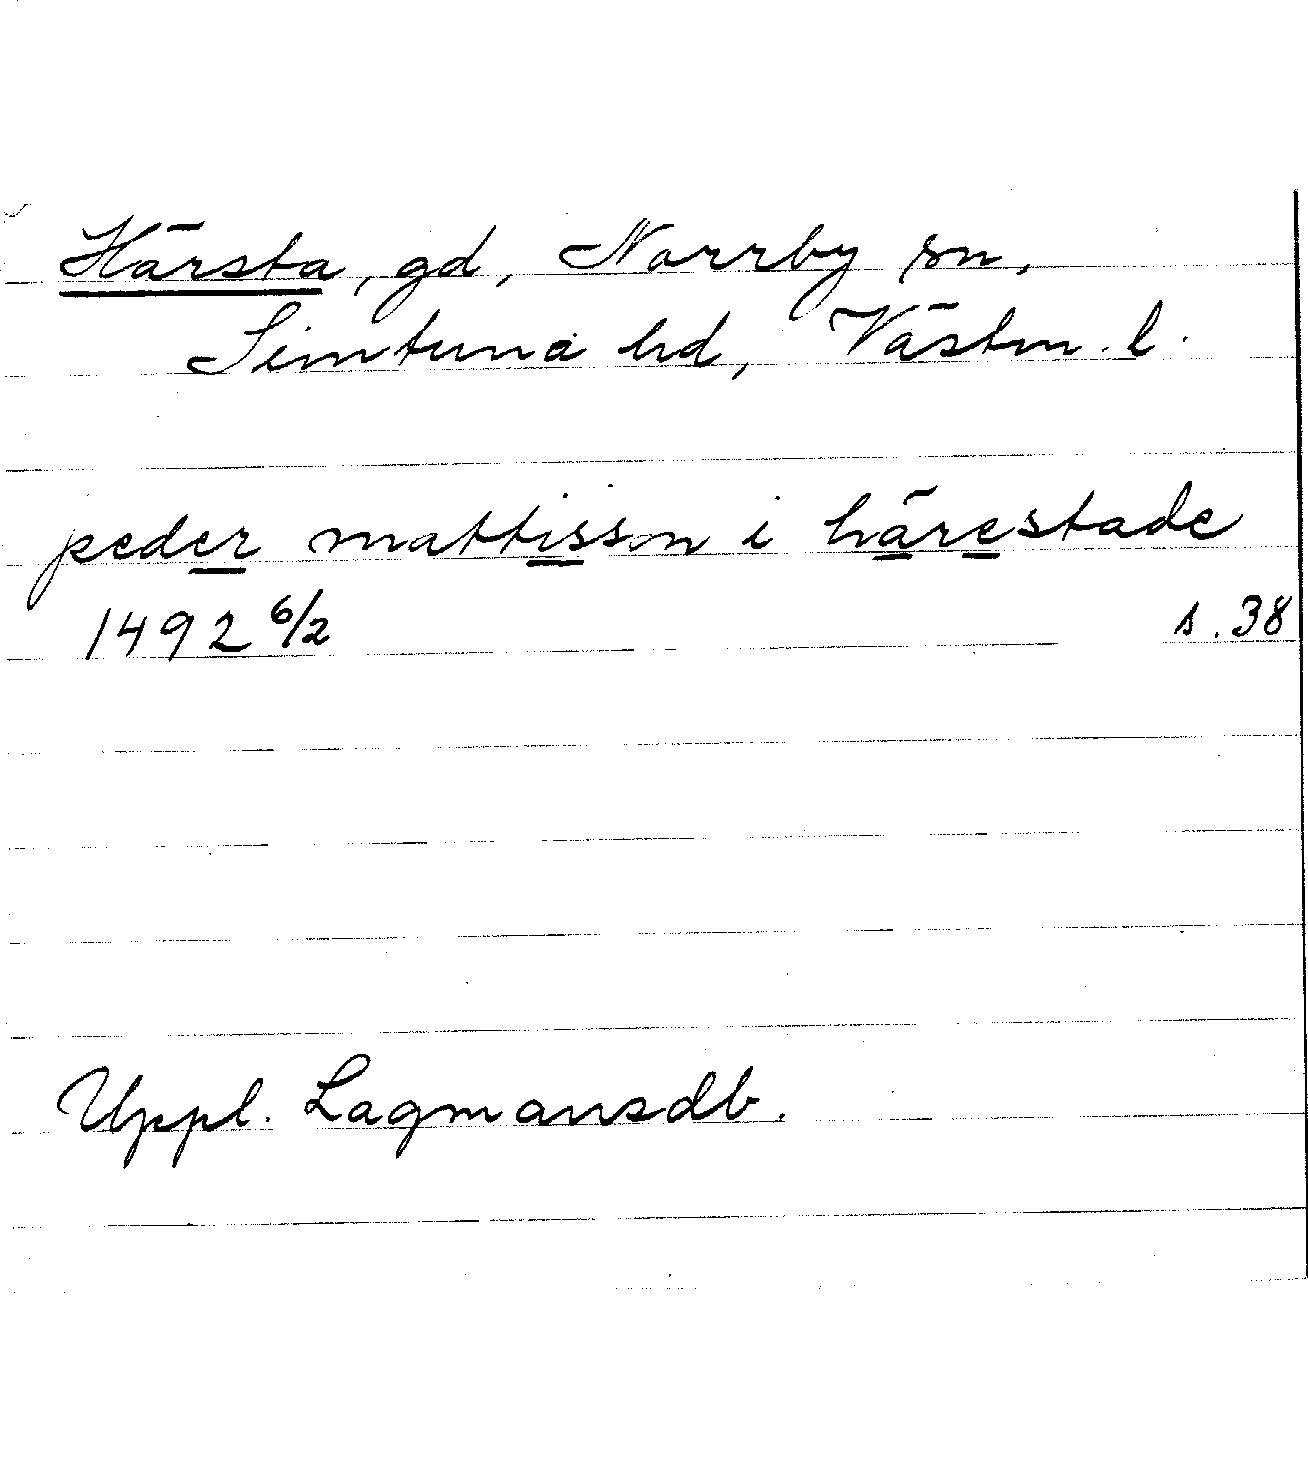 Härsta, gd, Norrby sn,
Simtuna hd, Västm. l.
peder mattisson i härestade
1492 6/2 s. 38
Uppl. Lagmansdb.